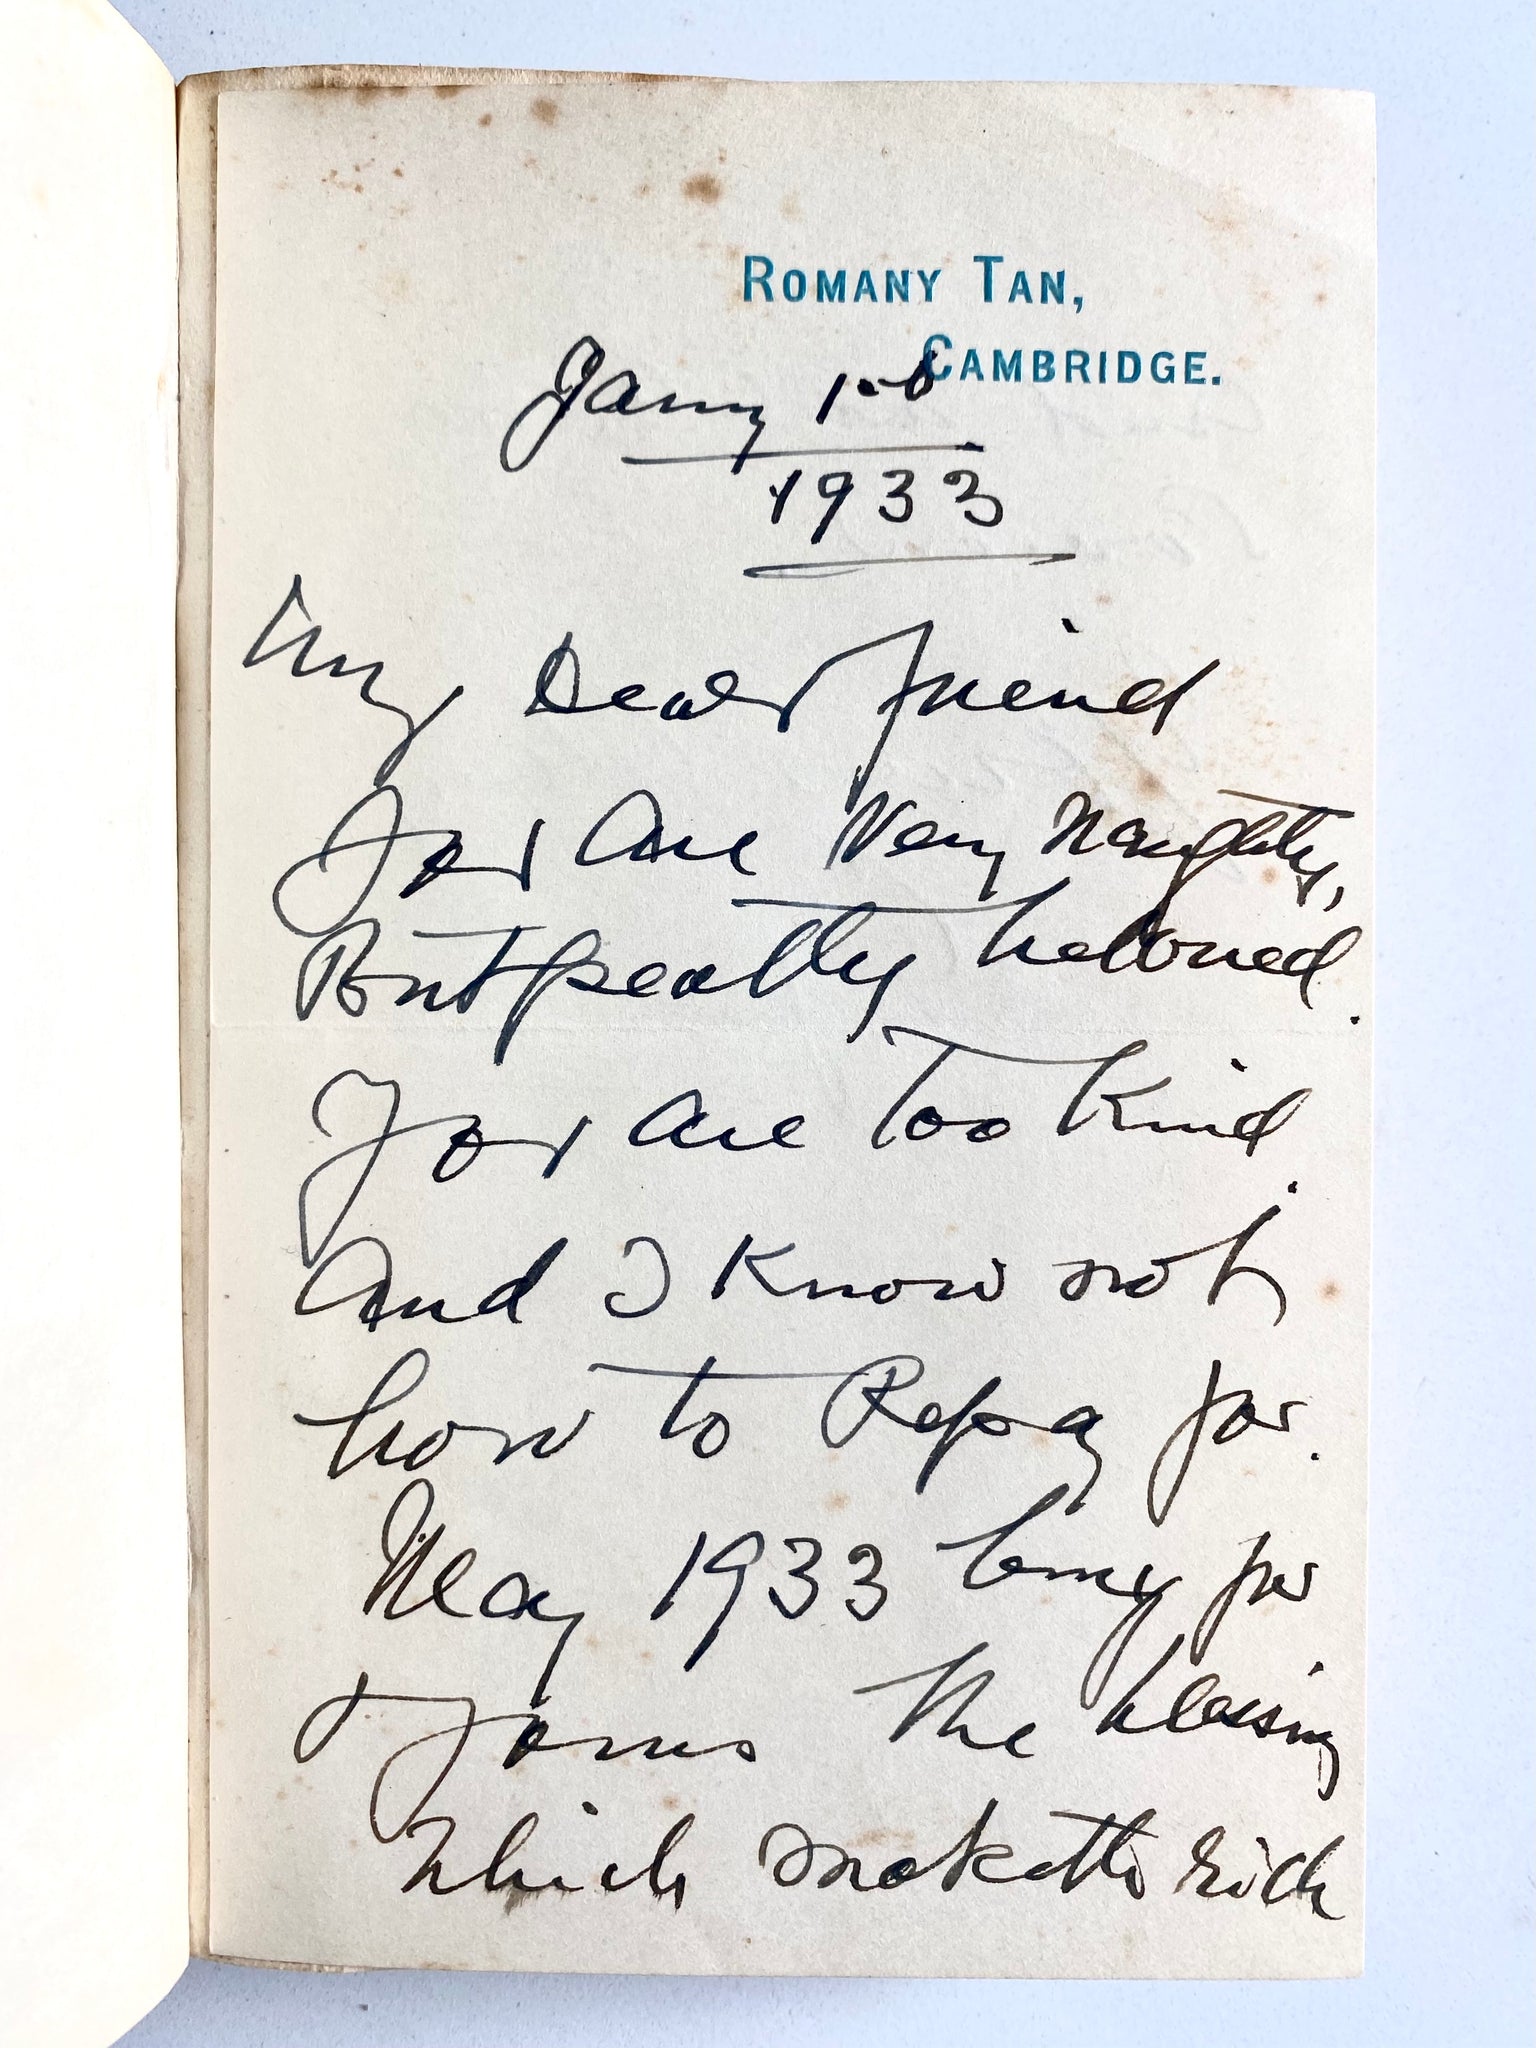 ROMANY TAN,
CAMBRIDGE.
Jany 1st
1933
My Dear friend
You are Very Naughty,
But greatly beloved.
You are Too Kind.
And I Know not
how to Repay you.
May 1933 bring you
& yours the blessing
which maketh rich